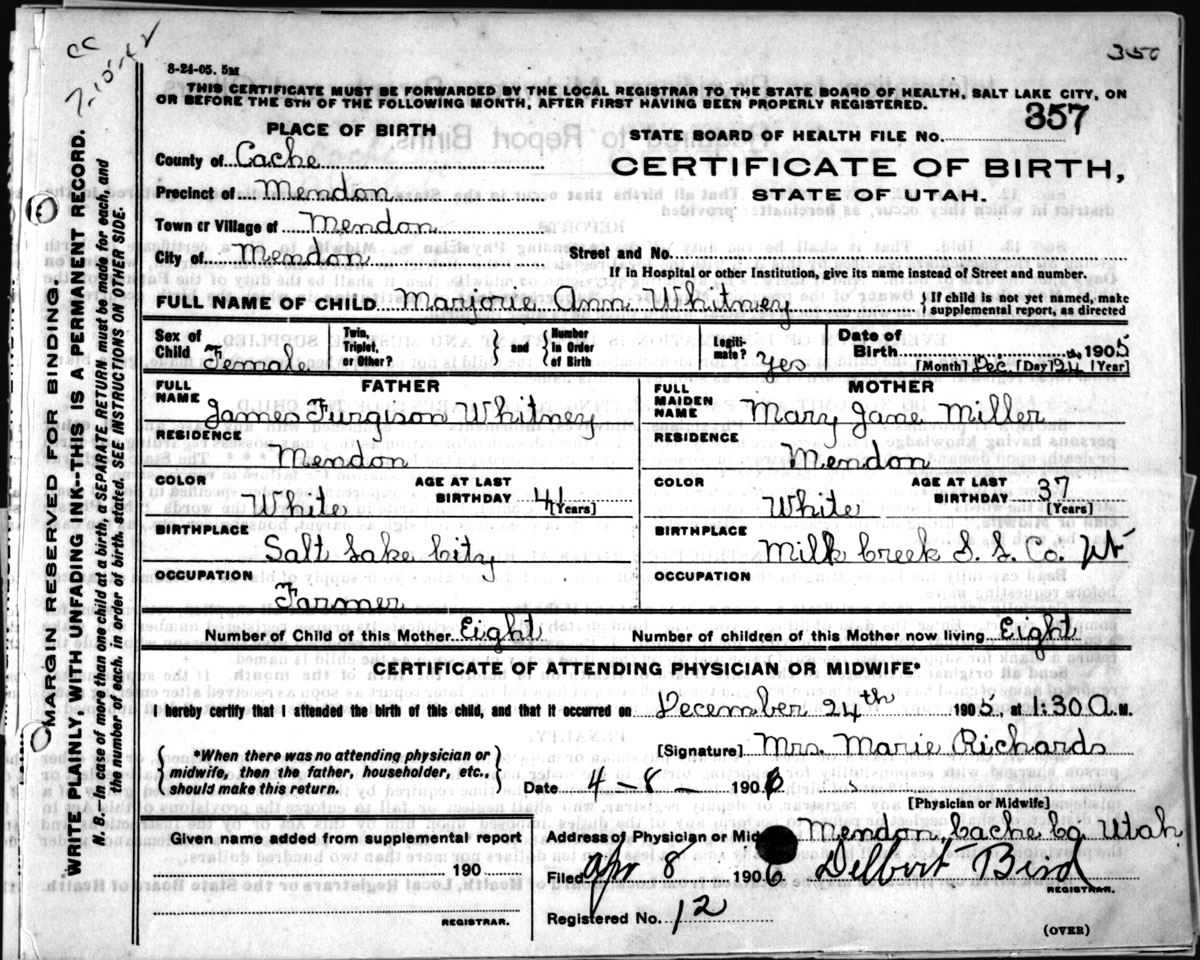 cc
7-10-42
350
8-24-05. 5M
THIS CERTIFICATE MUST BE FORWARDED BY THE LOCAL REGISTRAR TO THE STATE BOARD OF HEALTH, SALT LAKE CITY, ON
OR BEFORE THE 5TH OF THE FOLLOWING MONTH, AFTER FIRST HAVING BEEN PROPERLY REGISTERED.
PLACE OF BIRTH
STATE BOARD OF HEALTH FILE NO. 357
County of Cache
CERTIFICATE OF BIRTH,
Precinct of Mendon
STATE OF UTAH.
Town or Village of Mendon
City of Mendon Street and No.
If in Hospital or other Institution, give its name instead of Street and number.
FULL NAME OF CHILD Marjorie Ann Whitney } If child is not yet named, make supplemental report, as directed
Sex of Child Female Twin, Triplet, or Other? } and { Number in Order of Birth Legiti- mate? Yes Date of Birth [Month] Dec. [Day] 24th 1905 [Year]
FULL NAME FATHER James Furgson Whitney
RESIDENCE Mendon
COLOR White AGE AT LAST BIRTHDAY 41 [Years]
BIRTHPLACE Salt Lake City
OCCUPATION Farmer
FULL MAIDEN NAME MOTHER Mary Jane Miller
RESIDENCE Mendon
COLOR White AGE AT LAST BIRTHDAY 37 [Years]
BIRTHPLACE Milk Creek S. L. Co. Ut
OCCUPATION
Number of Child of this Mother Eight Number of children of this Mother now living Eight
CERTIFICATE OF ATTENDING PHYSICIAN OR MIDWIFE*
I hereby certify that I attended the birth of this child, and that it occurred on December 24th 1905, at 1:30 A. M.
{ *When there was no attending physician or midwife, then the father, householder, etc., should make this return. }
[Signature] Mrs. Marie Richards
Date 4-8- 1906
[Physician or Midwife]
Given name added from supplemental report
190
REGISTRAR.
Address of Physician or Mid Mendon, Cache Co. Utah
Filed Apr 8 1906 Delbert Bird
REGISTRAR.
Registered No. 12
(OVER)
MARGIN RESERVED FOR BINDING
WRITE PLAINLY, WITH UNFADING INK--THIS IS A PERMANENT RECORD.
N. B. In case of more than one child at a birth, a SEPARATE RETURN must be made for each, and
the number of each, in order of birth, stated. SEE INSTRUCTIONS ON OTHER SIDE.